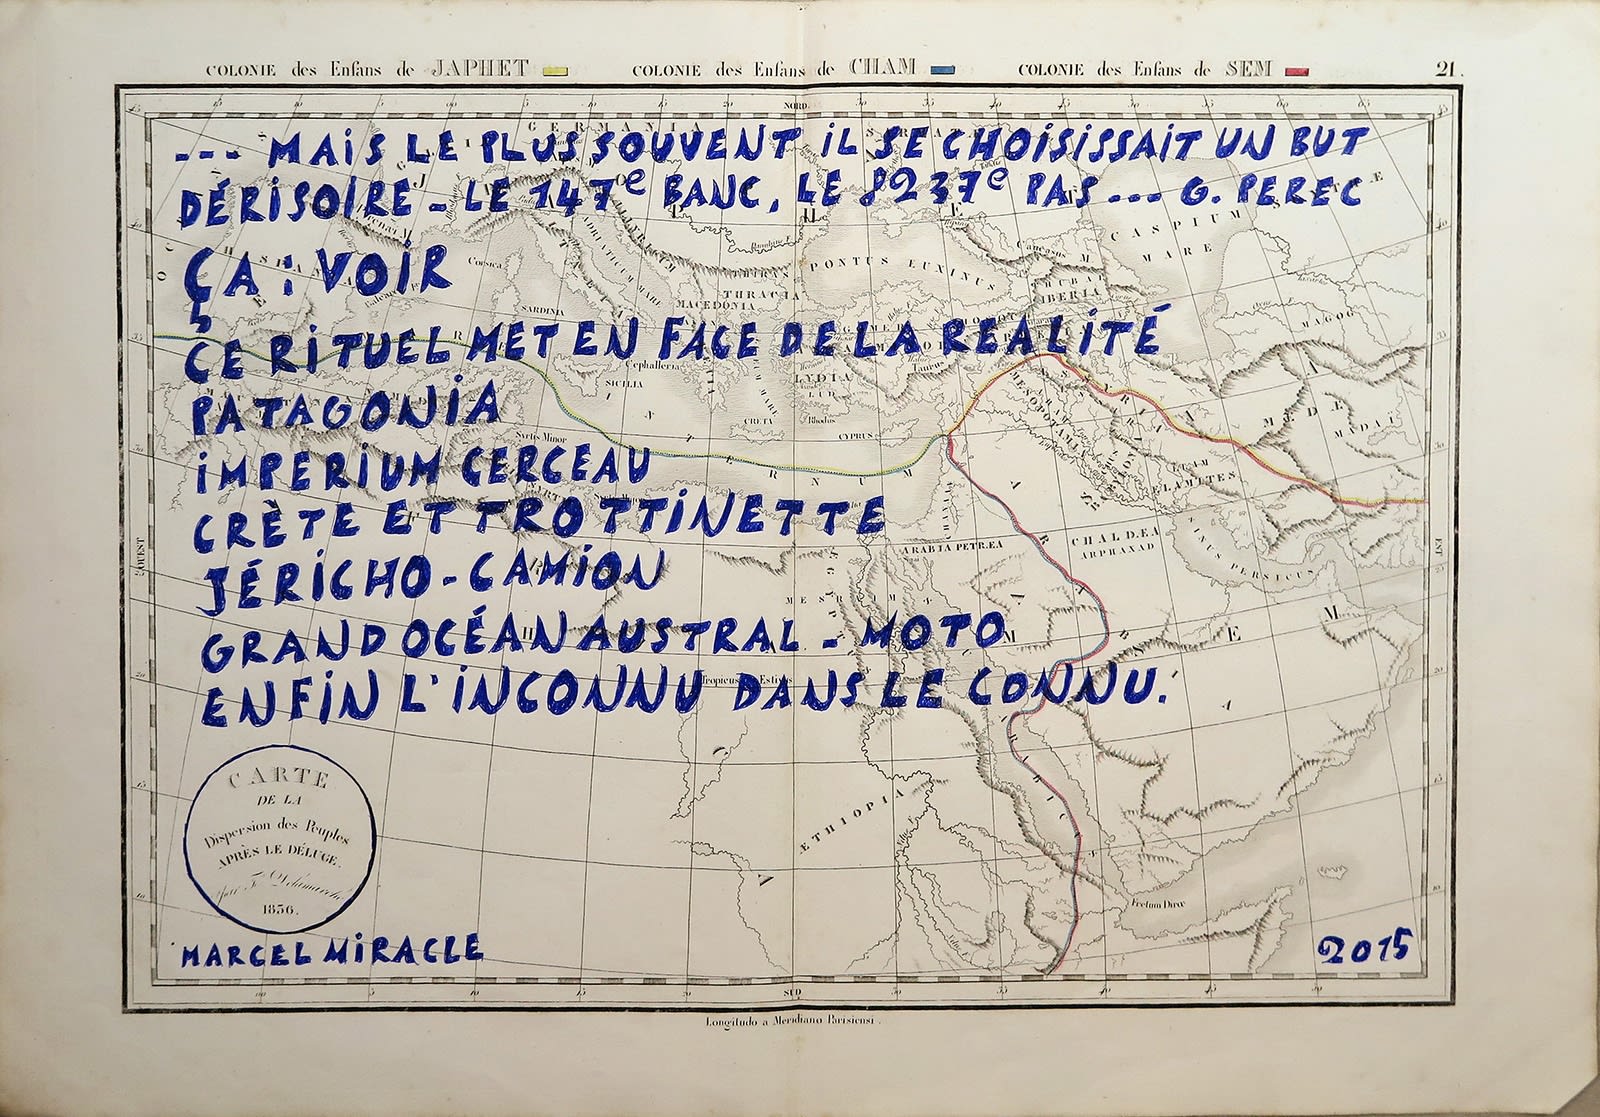 COLONIE des Enfans de JAPHET COLONIE des Enfans de CHAM COLONIE des Enfans de SEM 21.
NORD
GERMANIA
--- MAIS LE PLUS SOUVENT IL SE CHOISISSAIT UN BUT
DÉRISOIRE - LE 147e BANC, LE 8237e PAS --- G. PEREC
CASPIUM
MARE
PONTUS EUXINUS
Caucasus M
IBERIA
HISPANIA
Corsica
ADRIATICUM MARE
ILLYRICUM
THRACIA
MACEDONIA
SARDINIA
MAGOG
ÇA : VOIR
ÇE RITUEL MET EN FACE DE LA REALITÉ
Cephalleria
SICILIA
LYDIA
LUD
Taurus
MESOPOTAMIA
ASSYRIA
MEDÆ
MADAÏ
PATAGONIA
CRETA
Rhodus
CYPRUS
Syrtis Minor
INTERNUM
ELAM
ELAMITES
BABYLONIA
IMPERIUM CERCEAU
CRÈTE ET TROTTINETTE
CHANAAN
ARABIA PETRÆA
CHALDÆA
ARPHAXAD
SINUS PERSICUS
OUEST
EST
JÉRICHO - CAMION
MESRIM
ÆGYPTUS
GRAND OCÉAN AUSTRAL - MOTO
SEM
Tropicus Æstivus
ENFIN L'INCONNU DANS LE CONNU.
ARABIA
ARABICUS
ÆTHIOPIA
CARTE
DE LA
Dispersion des Peuples
APRÈS LE DÉLUGE.
par F. Delamarche
1836.
Fretum Diræ
MARCEL MIRACLE
2015
SUD
Longitudo a Meridiano Parisiensi.